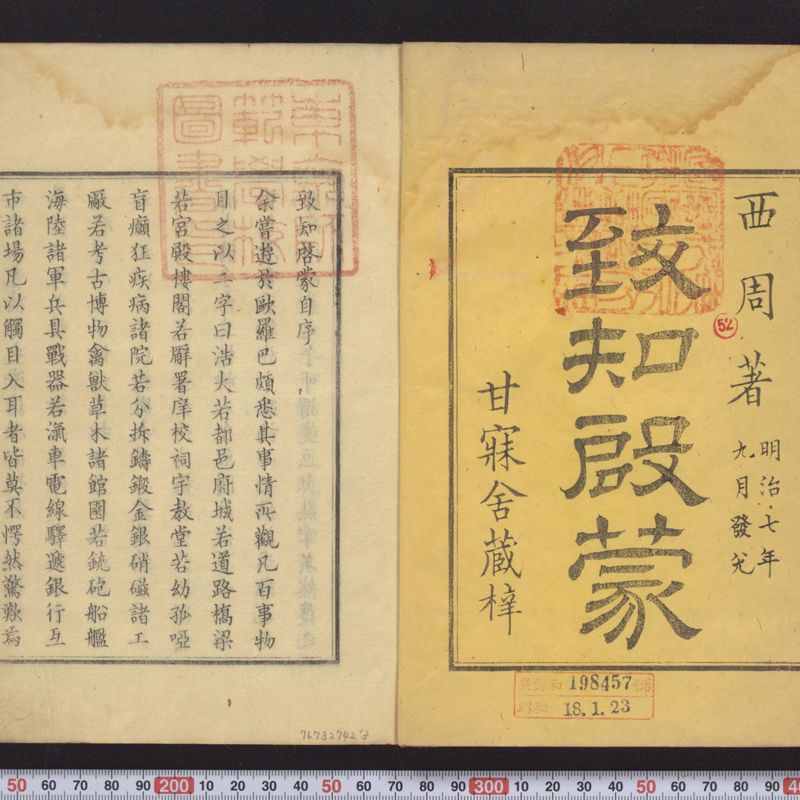 西周著
明治七年
九月發兌
致知啟蒙
甘寐舍蔵梓
52
198457
18.1.23
致知啓蒙自序
余嘗遊於歐羅巴頗悉其事情所觀凡百事物
目之以二字曰浩大若都邑府城若道路橋梁
若宮殿樓閣若廨署庠校祠宇教堂若幼孤啞
盲癲狂疾病諸院若分拆鑄鍛金銀硝磁諸工
厰若考古博物禽獸草木諸館園若銃砲船艦
海陸諸軍兵具戰器若滊車電線驛遞銀行互
市諸場凡以觸目入耳者皆莫不愕然驚歎焉
東京師
範學校
圖書印
76732742
50 60 70 80 90 200 10 20 30 40 50 60 70 80 90 300 10 20 30 40 50 60 70 80 90